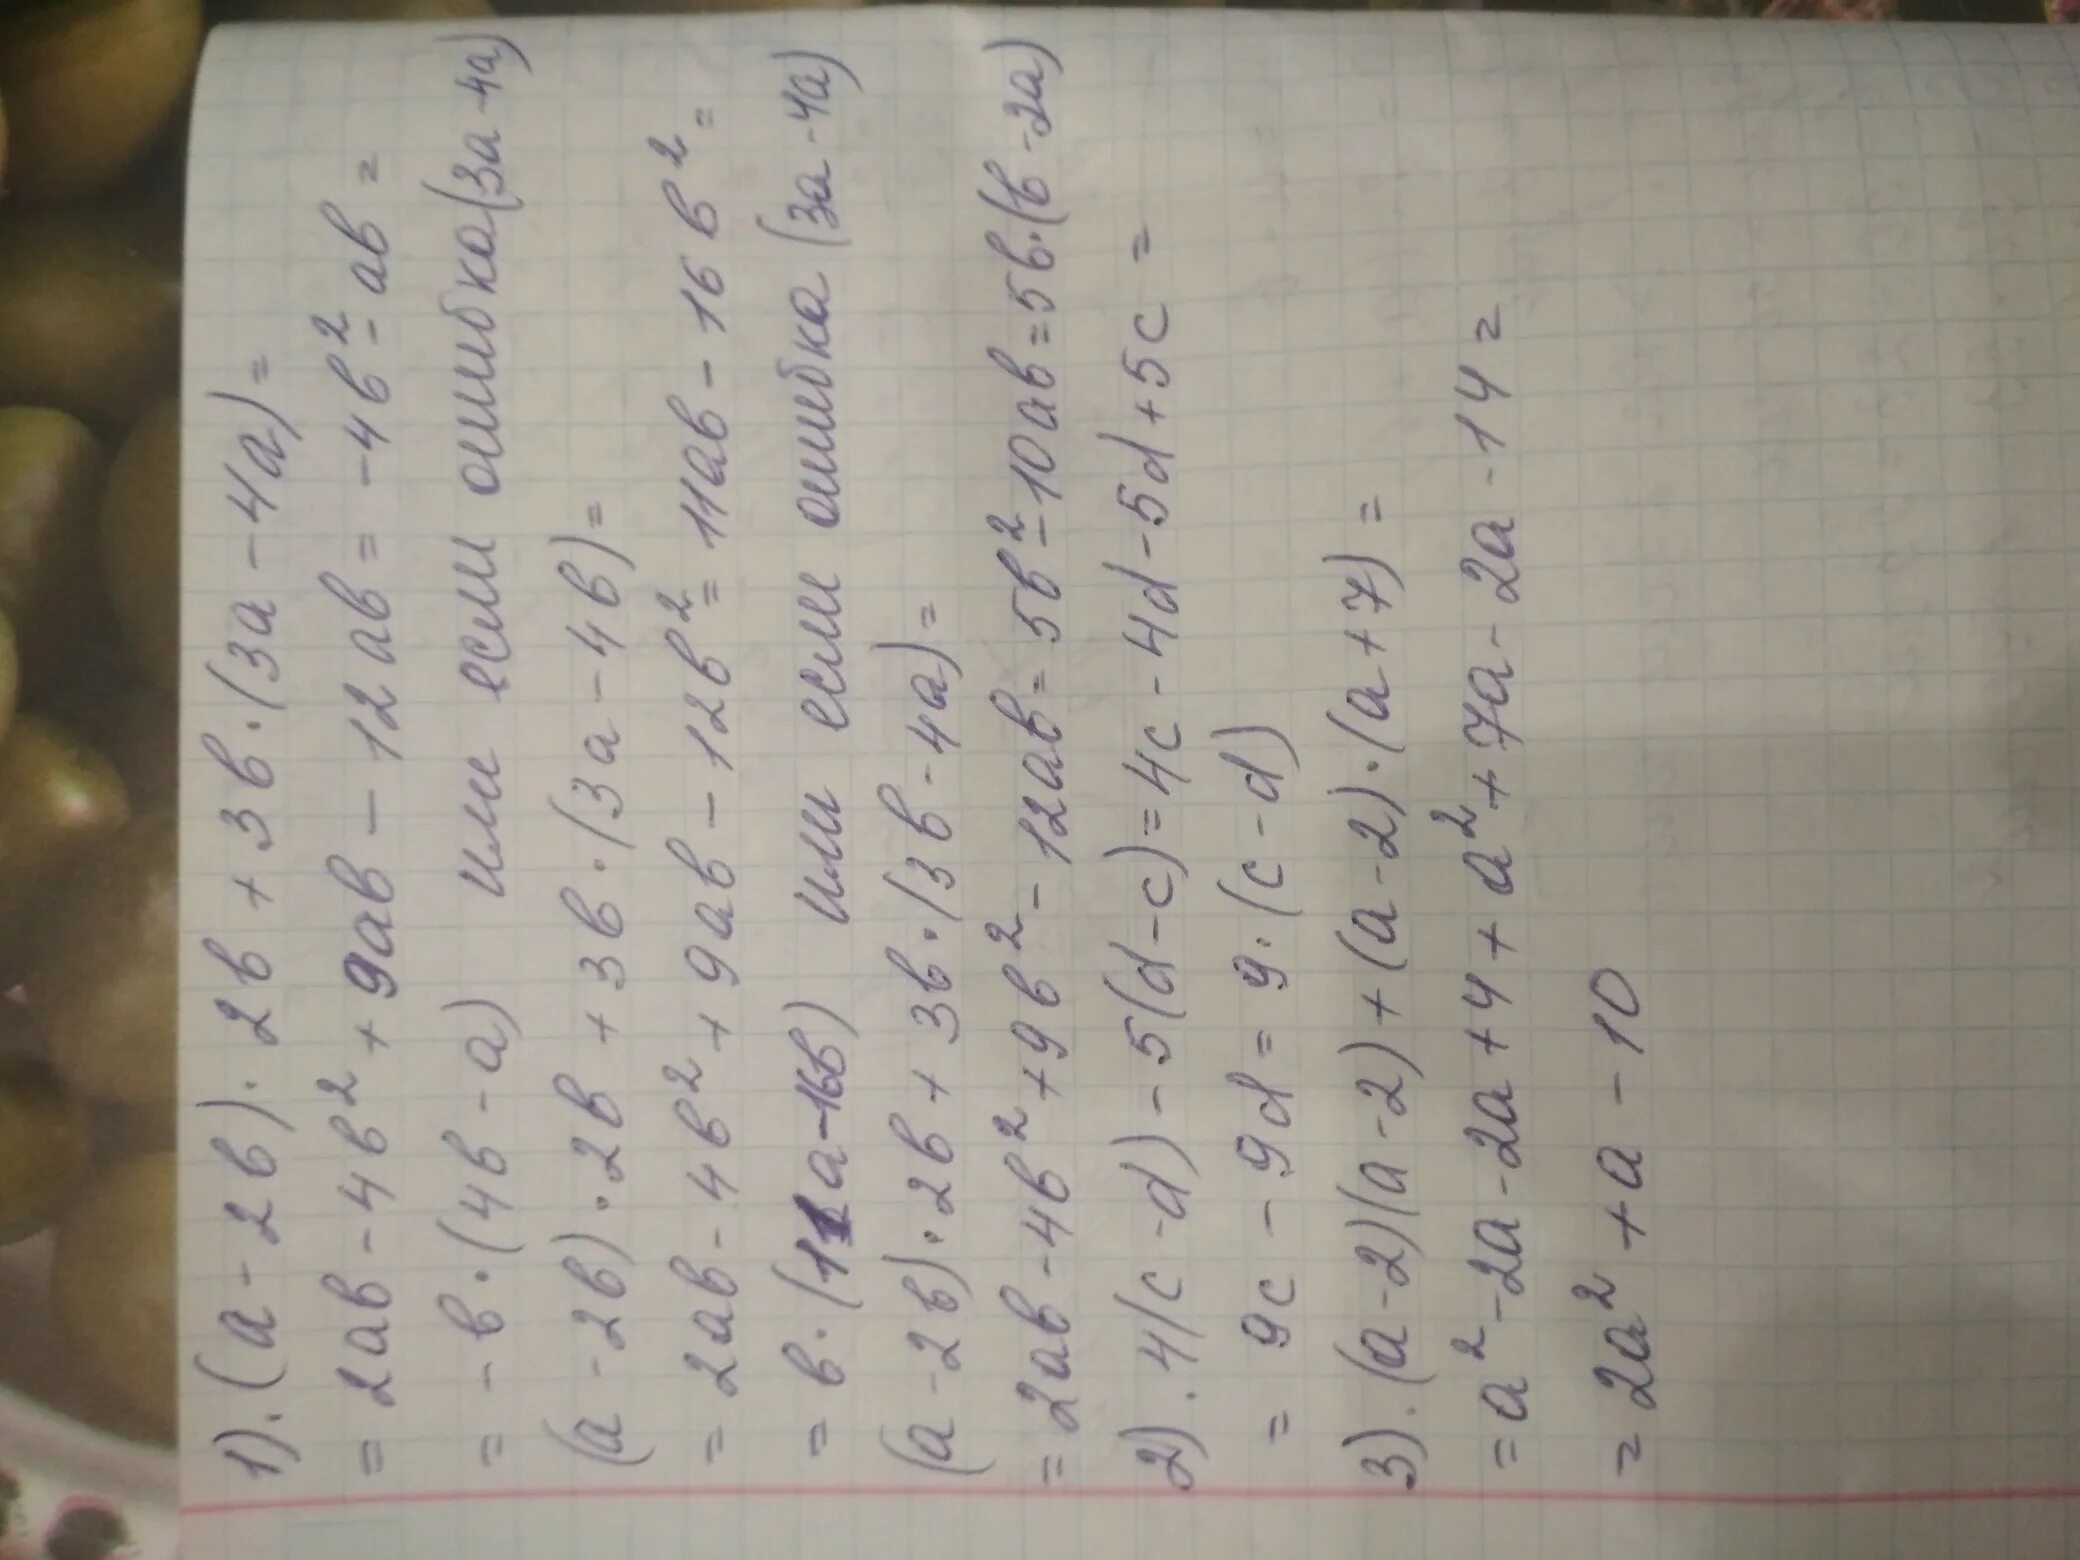 1).(а-2в).2в+3в.(3а-4а)=
=2ав-4в²+9ав-12ав=-4в²-ав=
=-в.(4в-а) или если ошибка(3а-4а)
(а-2в).2в+3в.(3а-4в)=
=2ав-4в²+9ав-12в²=11ав-16в²=
=в.(11а-16в) или если ошибка (3а-4а)
(а-2в).2в+3в.(3в-4а)=
=2ав-4в²+9в²-12ав=5в²-10ав=5в.(в-2а)
2).4(c-d)-5(d-c)=4c-4d-5d+5c=
=9c-9d=9.(c-d)
3).(а-2)(а-2)+(а-2).(а+7)=
=а²-2а-2а+4+а²+7а-2а-14=
=2а²+а-10